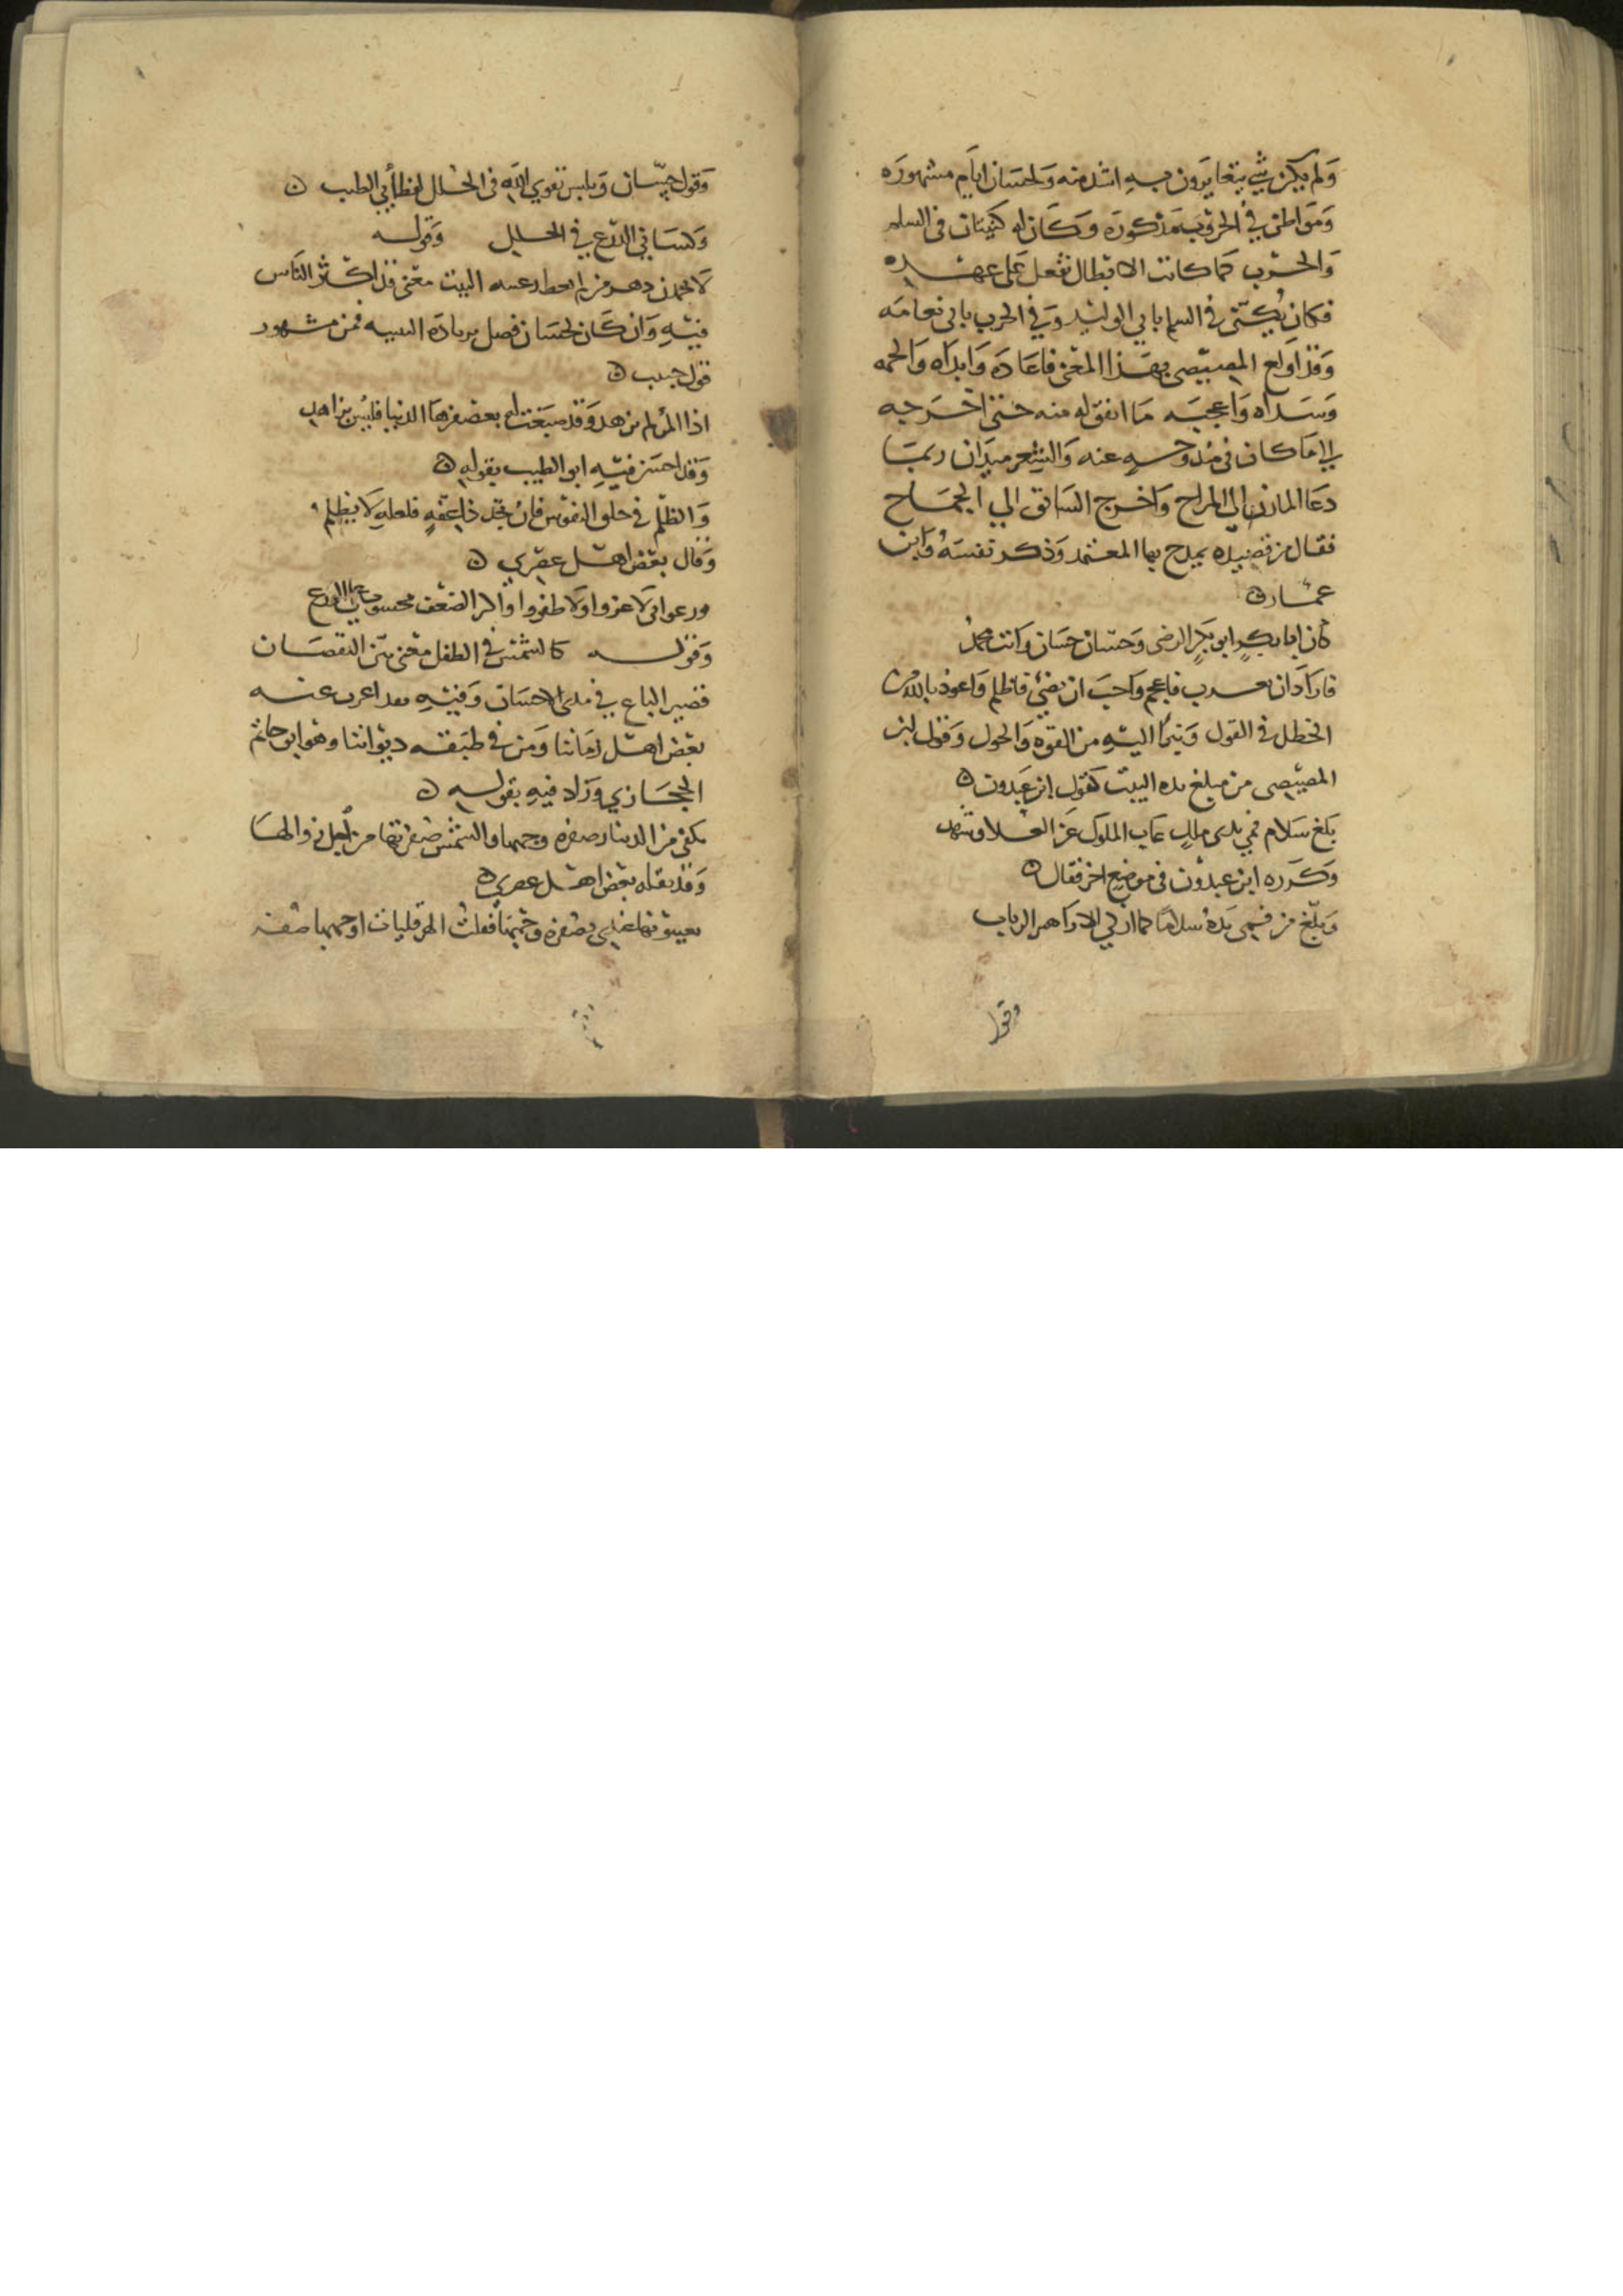 ولم يكن شي يتغايرون فيه اشد منه ولحسان ايام مشهوره
ومواطن في الحروب مذكوره وكان له كنيتان في السلم
والحرب كما كانت الابطال تفعل على عهده
فكان يكنى في السلم بابي الوليد وفي الحرب بابي نعامه
وقد اولع المصيصى بهذا المعنى فاعاده وابداه والحمه
وسداه واعجبه ما اتفق له منه حتى اخرجه
الي ما كان في مندوحه عنه والشعر ميدان ربما
دعا المازن الي المراح واخرج السابق الي الجماح
فقال من قصيده يمدح بها المعتمد وذكر نفسه وابن
عمار
كان ابا بكر ابو بكر الرضى وحسان حسان وانت محمد
فاراد ان يعرب فاعجم واحب ان يضي فاظلم واعوذ بالله من
الخطل في القول ونبرا اليه من القوه والحول وقول ابن
المصيصى من مبلغ يده البيت كقول ابن عبدون
بلغ سلام فمي يدى ملك عاب الملوك عن العلا وشهد
وكرره ابن عبدون في موضع اخر فقال
وبلغ من فمى يده سلاما كما ارلي الازاهر الرباب
وقول
وقول حسان ويلبس تقوي الله في الحلل لفظ ابي الطيب
وكساني الدرع في الحلل وقوله
لا تحمدن دهر البيت معنى قد اكثر الناس
فيه وان كان لحسان فصل بزياده فمن مشهور
قول حبيب
اذا المرء لم يزهد وقد صبغت له بعصفرها الدنيا فليس بزاهد
وقد احسن فيه ابو الطيب بقوله
والظلم في خلق النفوس فان تجد ذا عفه فلعله لا يظلم
وقال بعض اهل عصري
ورعوا لا عزوا ولا ظفروا الضعف محسوب علي الورع
وقوله كالشمس في الطفل معنى بين النقصان
قصير الباع في مدى الاحسان وفيه اعرب عنه
بعض اهل زماننا ومن في طبقه ديواننا وهو ابو حاتم
الحجازي وزاد فيه بقوله
يكفي من الدينار صفره وجهها والشمس صفرتها من اجل زوالها
وقد نقله بعض اهل عصري
بصفره وختمها فقلت الهرقليات اوجهها صفر